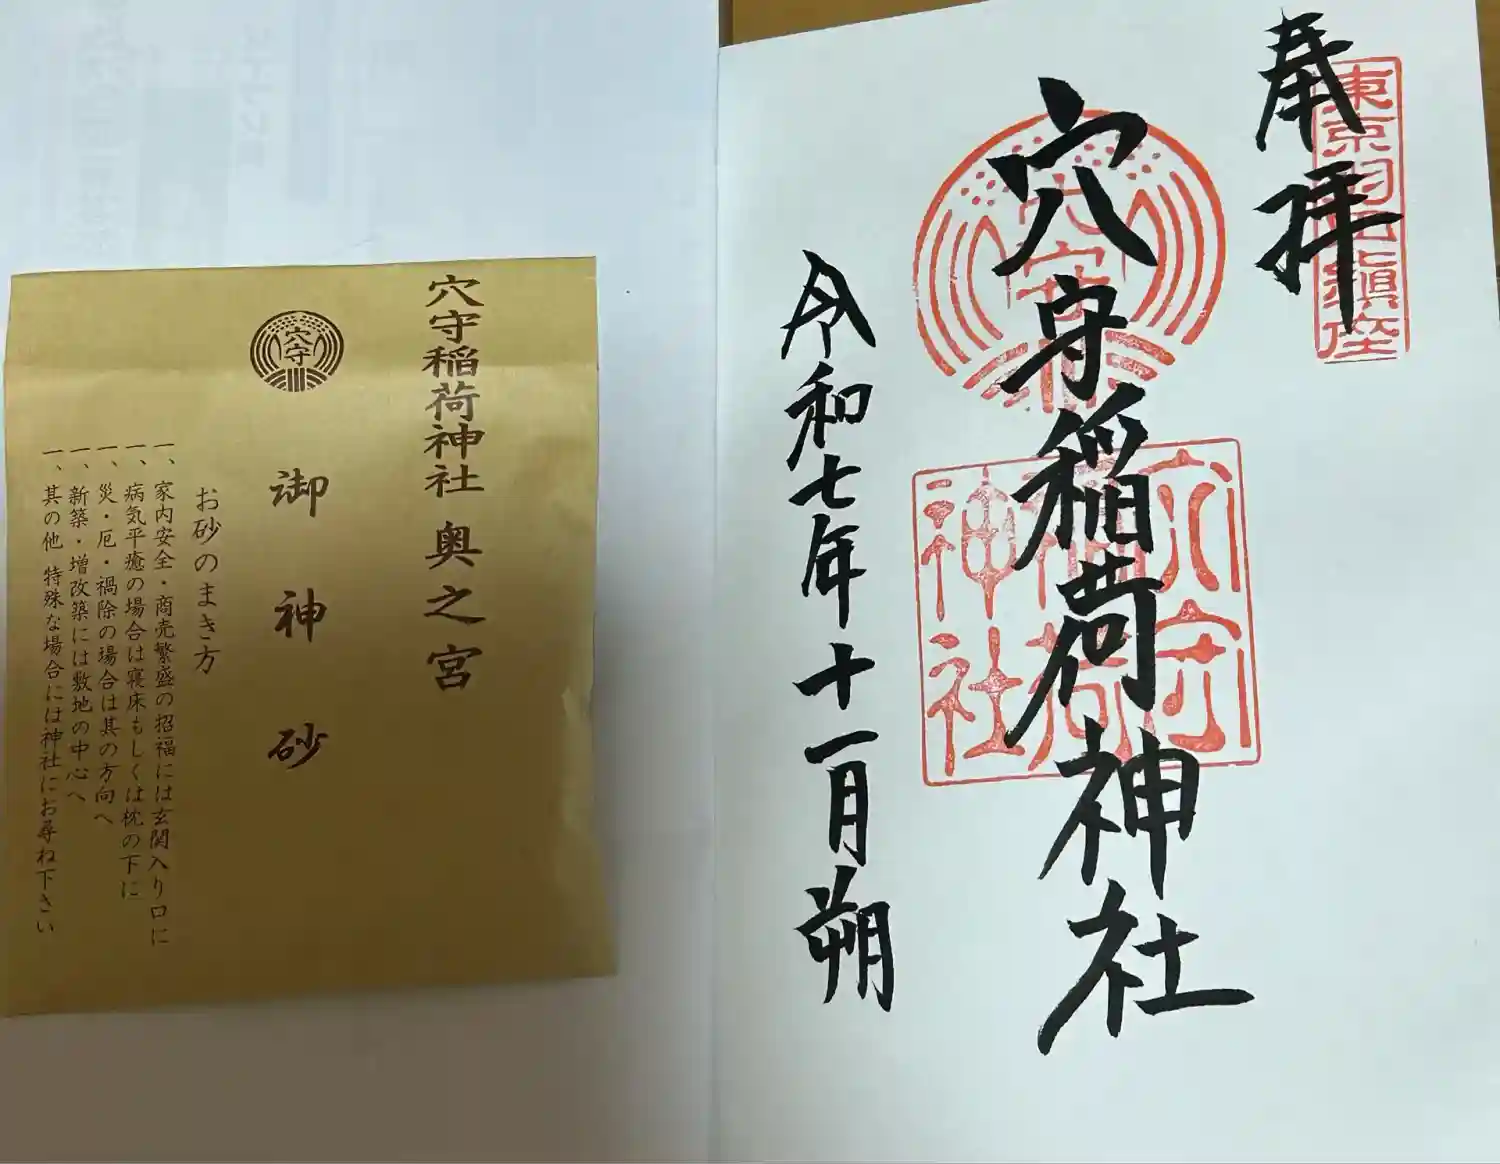 奉拝
東京羽田鎮座
穴守稲荷神社
穴守
稲荷
神社
令和七年十一月朔
穴守稲荷神社 奥之宮
穴守
御神砂
お砂のまき方
一、家内安全・商売繁盛の招福には玄関入り口に
一、病気平癒の場合は寝床もしくは枕の下に
一、災・厄・禍除の場合は其の方向へ
一、新築・増改築には敷地の中心へ
一、其の他 特殊な場合には神社にお尋ね下さい